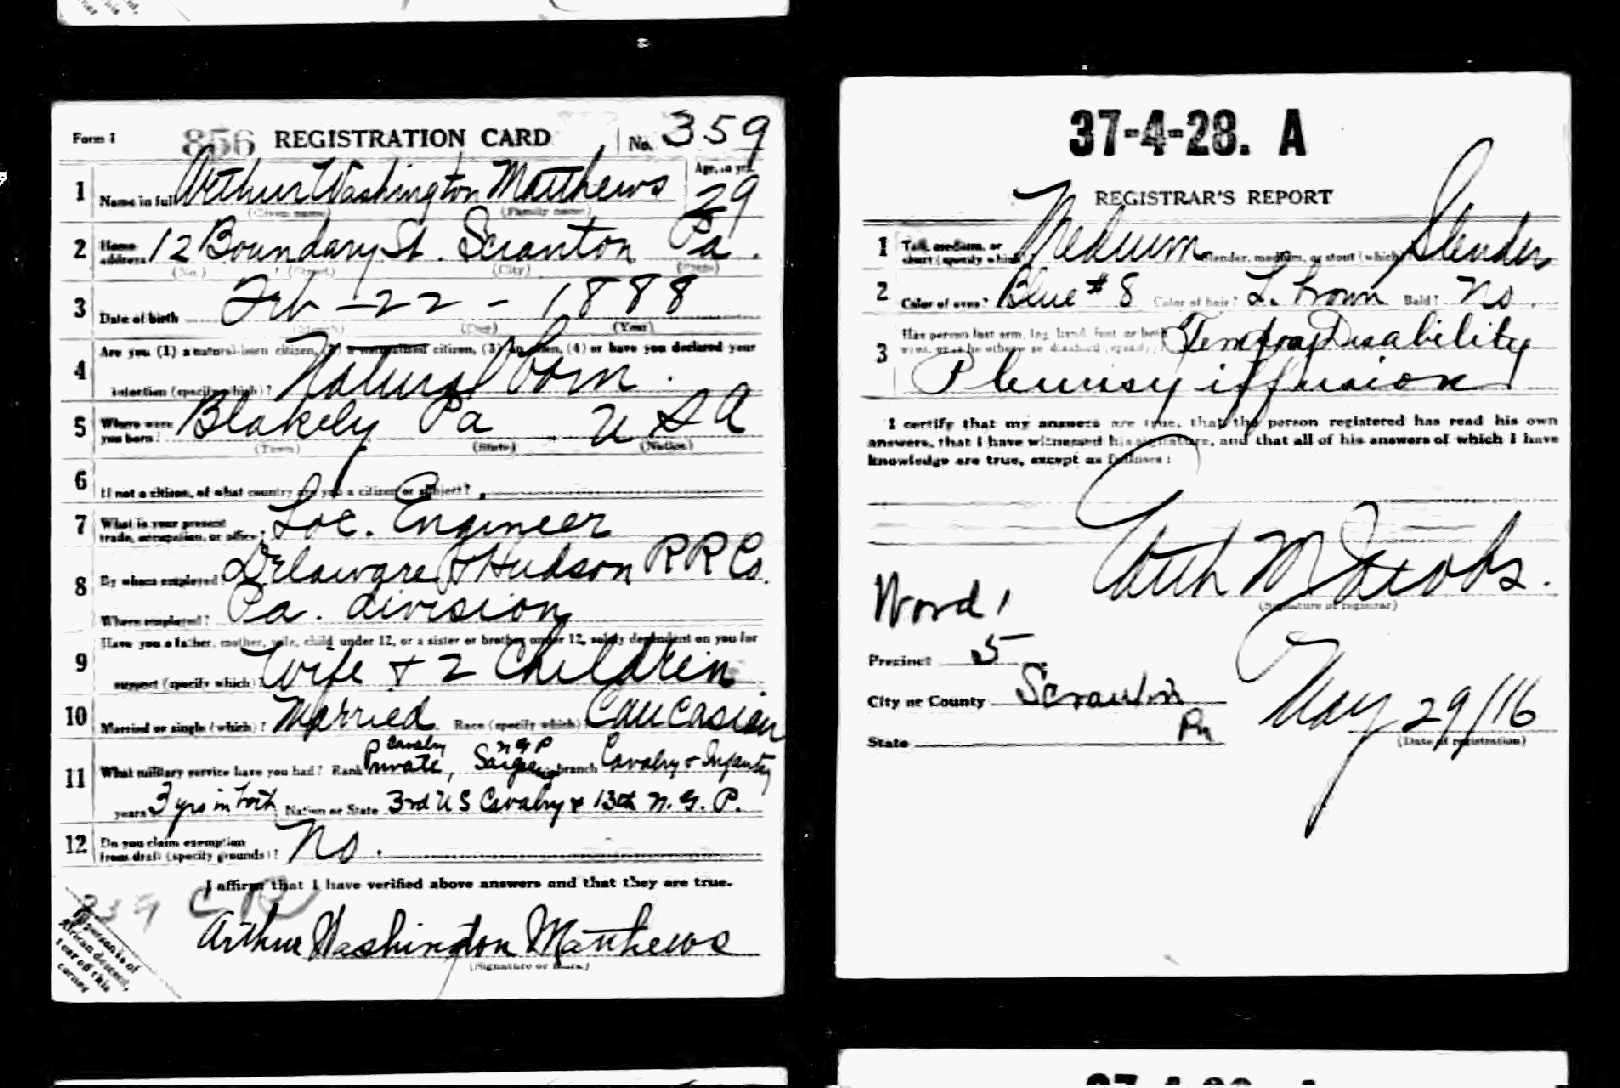 Form 1 856 REGISTRATION CARD No. 359
1 Name in full Arthur Washington Matthews Age, in yrs. 29
(Given name) (Family name)
2 Home address 12 Boundary St. Scranton Pa.
(No.) (Street) (City) (State)
3 Date of birth Feb - 22 - 1888
(Month) (Day) (Year)
4 Are you (1) a natural-born citizen, (2) a naturalized citizen, (3) an alien, (4) or have you declared your
intention (specify which)? Natural born.
5 Where were you born? Blakely Pa U S A
(Town) (State) (Nation)
6 If not a citizen, of what country are you a citizen or subject?
7 What is your present trade, occupation, or office? Loc. Engineer
8 By whom employed Delaware & Hudson R R Co.
Where employed? Pa. division
9 Have you a father, mother, wife, child under 12, or a sister or brother under 12, solely dependent on you for
support (specify which)? Wife + 2 Children
10 Married or single (which)? Married Race (specify which) Caucasian
Cavalry N G P
11 What military service have you had? Rank Private, branch Cavalry & Infantry
years 3 yrs in both Nation or State 3rd U S Cavalry & 13th N. G. P.
12 Do you claim exemption from draft (specify grounds)? No.
I affirm that I have verified above answers and that they are true.
Arthur Washington Matthews
(Signature or mark)
If person is of
African descent,
tear off this
corner
37-4-28. A
REGISTRAR'S REPORT
1 Tall, medium, or short (specify which) Medium Slender, medium, or stout (which) Slender
2 Color of eyes? Blue #8 Color of hair? L. brown Bald? No.
3 Has person lost arm, leg, hand, foot, or both Disability
I certify that my answers are true, that the person registered has read his own
answers, that I have witnessed his signature, and that all of his answers of which I have
knowledge are true, except as follows:
M Jacobs.
(Signature of registrar)
Word 1
Precinct 5
City or County Scranton
May 29/16
State Pa
(Date of registration)
37-4-28. A